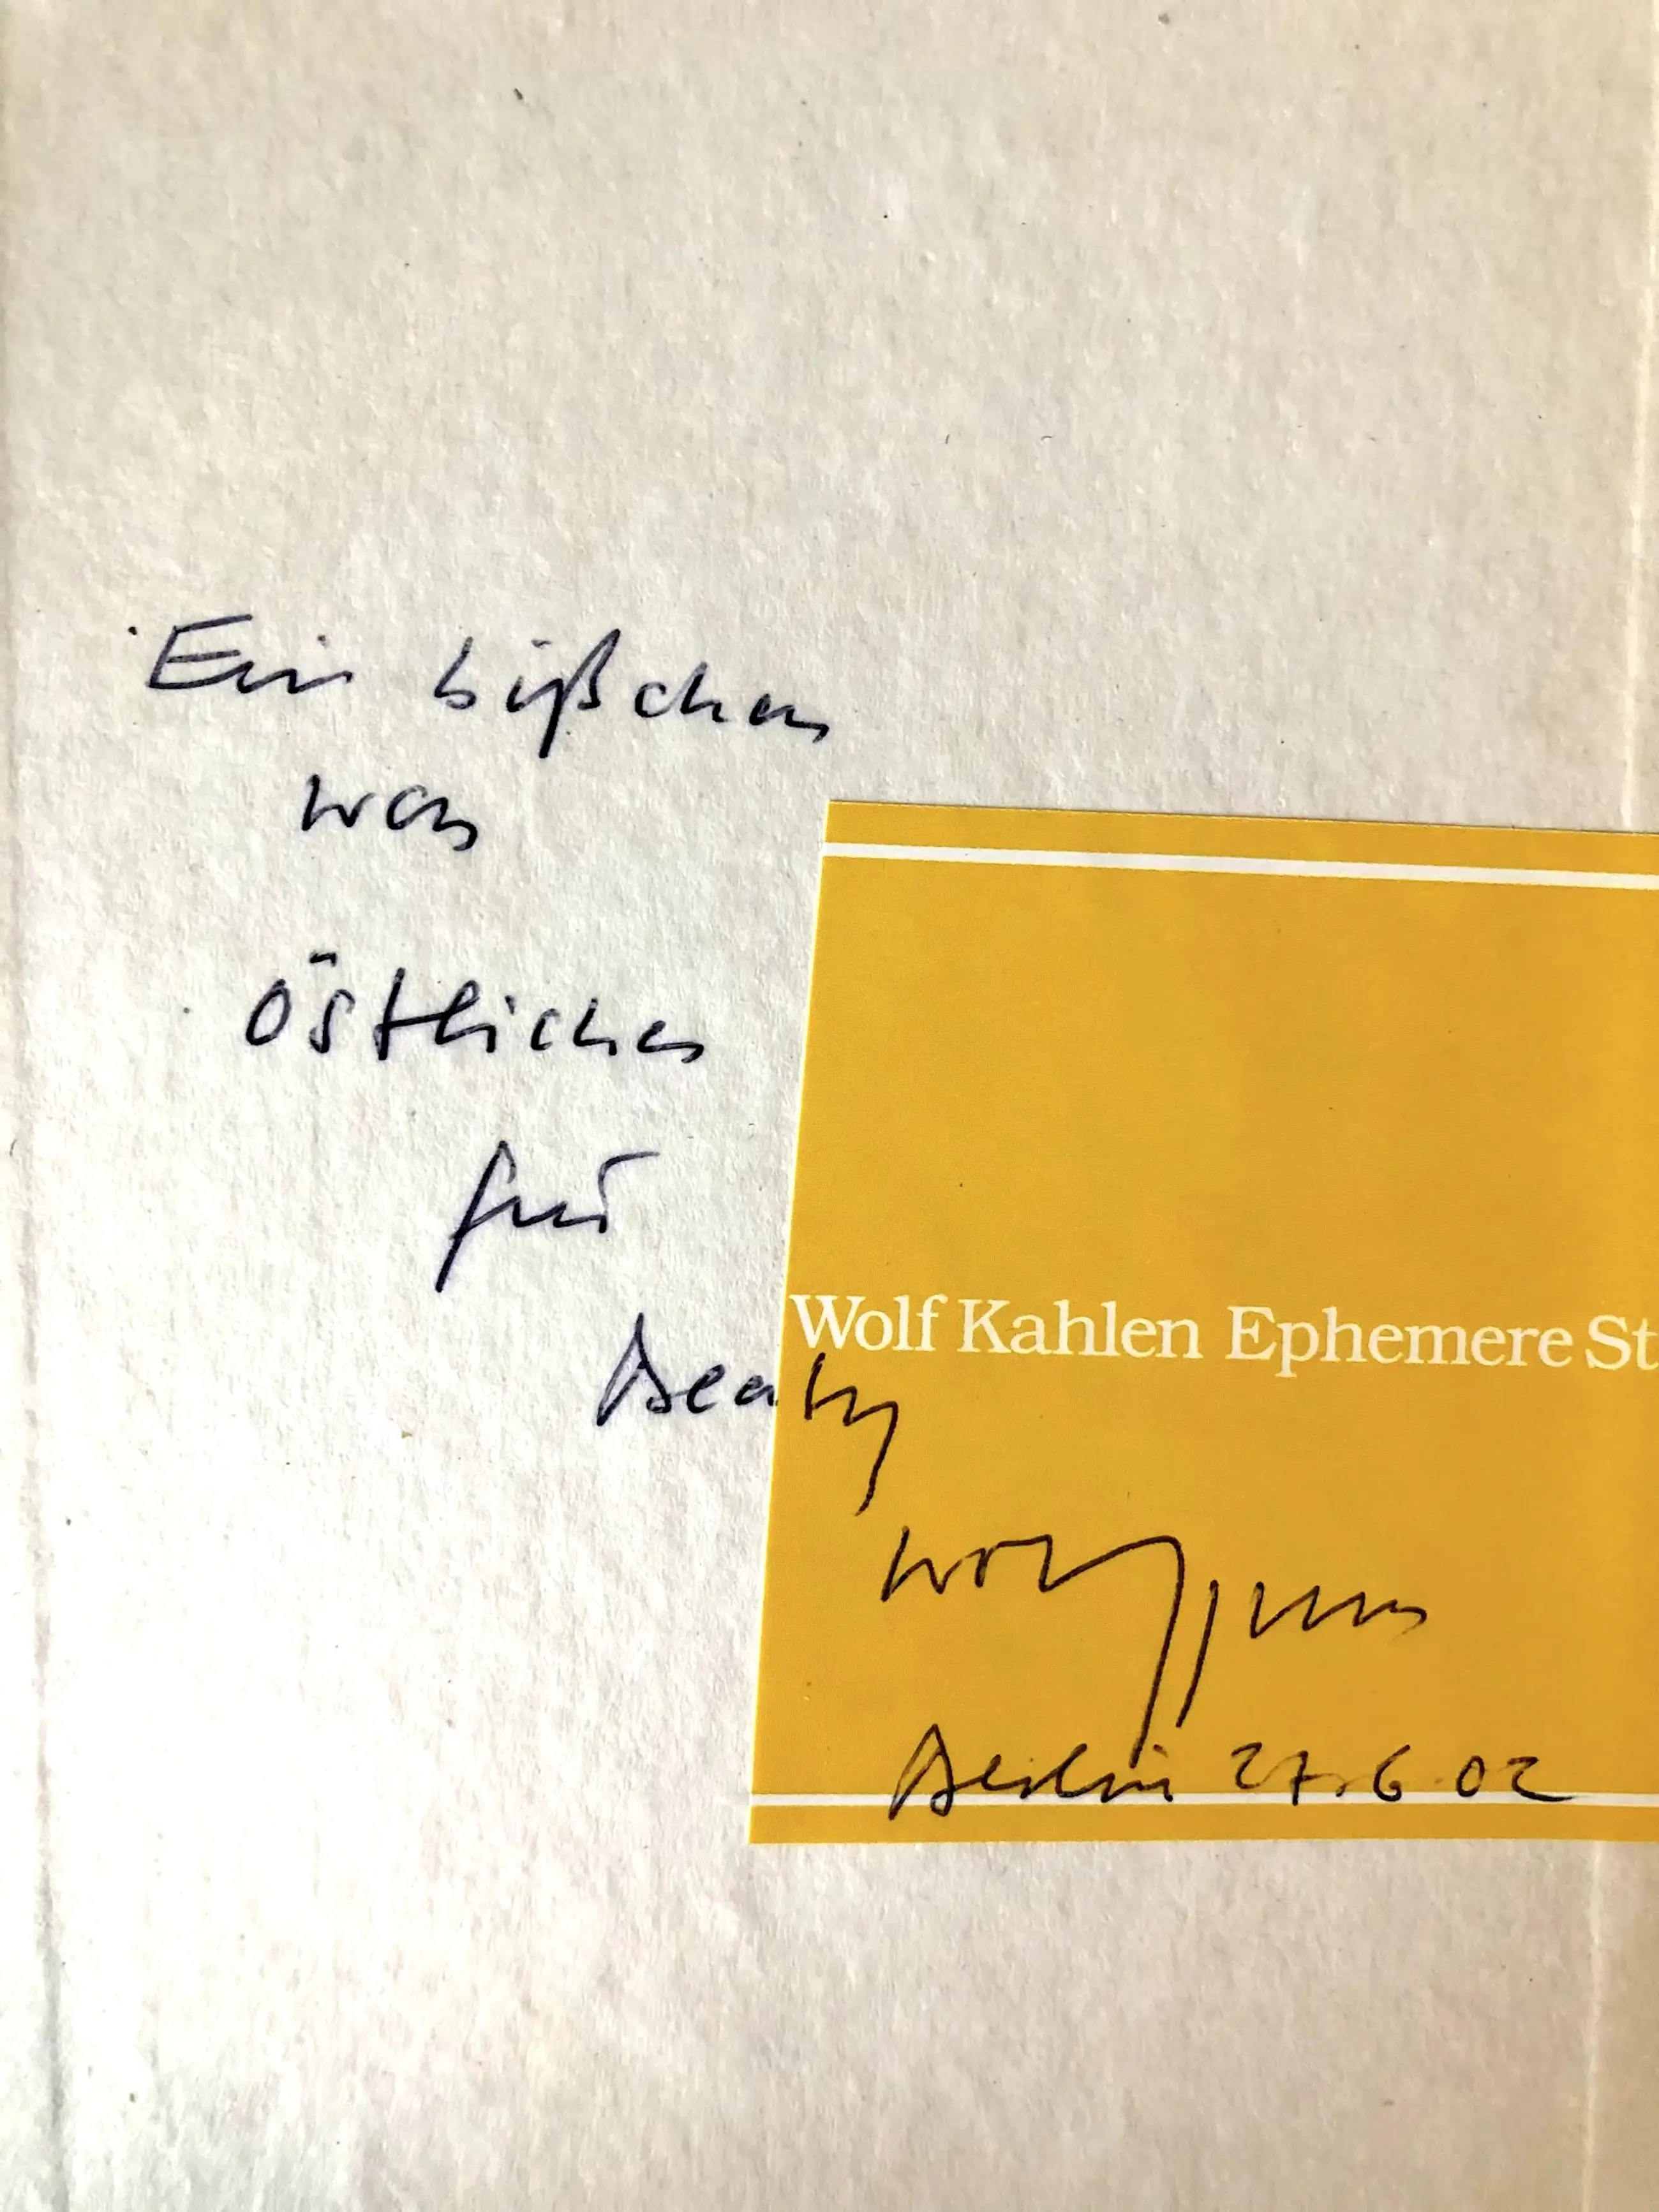 Ein bißchen
was
östliches
für
Beaty
Wolf Kahlen Ephemere St
Berlin 27.6.02